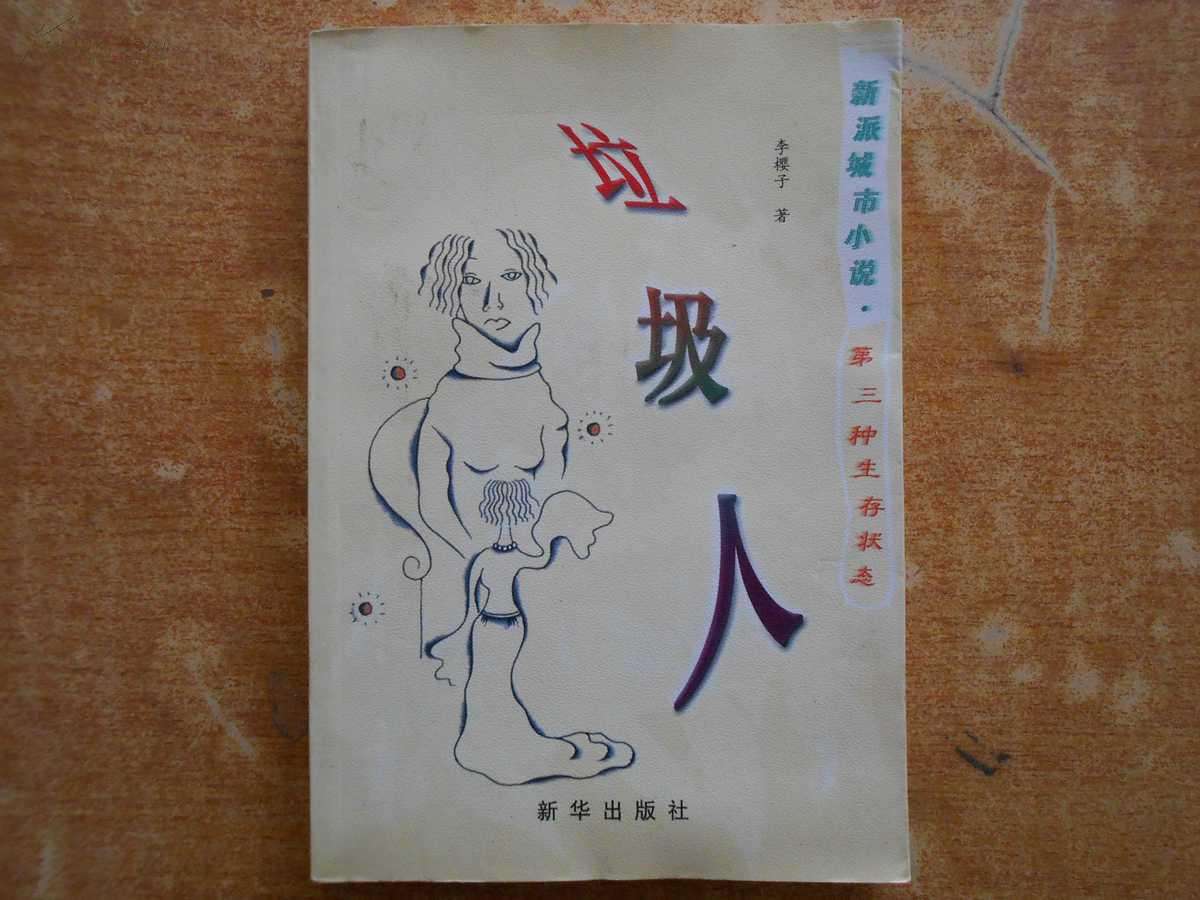 新派城市小说·第三种生存状态
李樱子 著
垃圾人
新华出版社